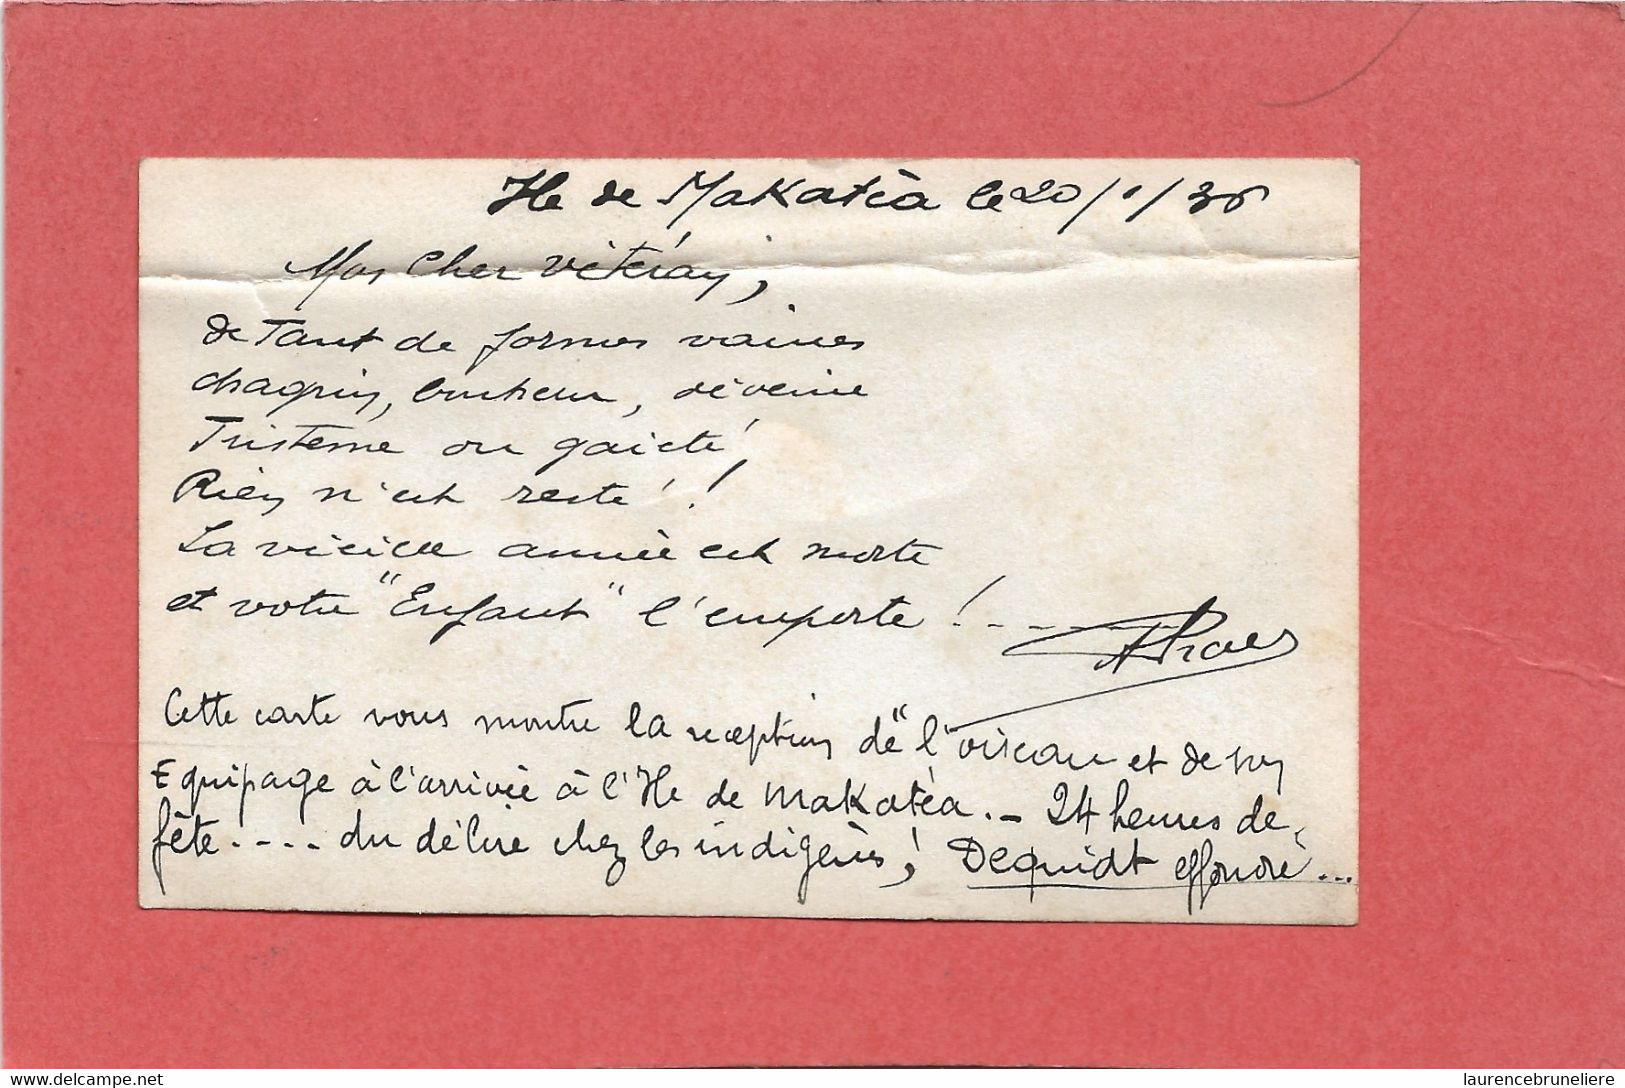 Ile de Makatèa le 20/1/36
Mon cher vétéran,
de Tant de formes vaines
chagrin, bonheur, déveine
Tristesse ou gaieté,
Rien n'est resté !
La vieille année est morte
et votre "Enfant" l'emporte !----
Cette carte vous montre la reception de "l'oiseau et de son
Equipage à l'arrivée à l'Ile de Makatéa. - 24 heures de
fête.---- du délire chez les indigènes ! Dequidt effondré...
delcampe.net
laurencebruneliere